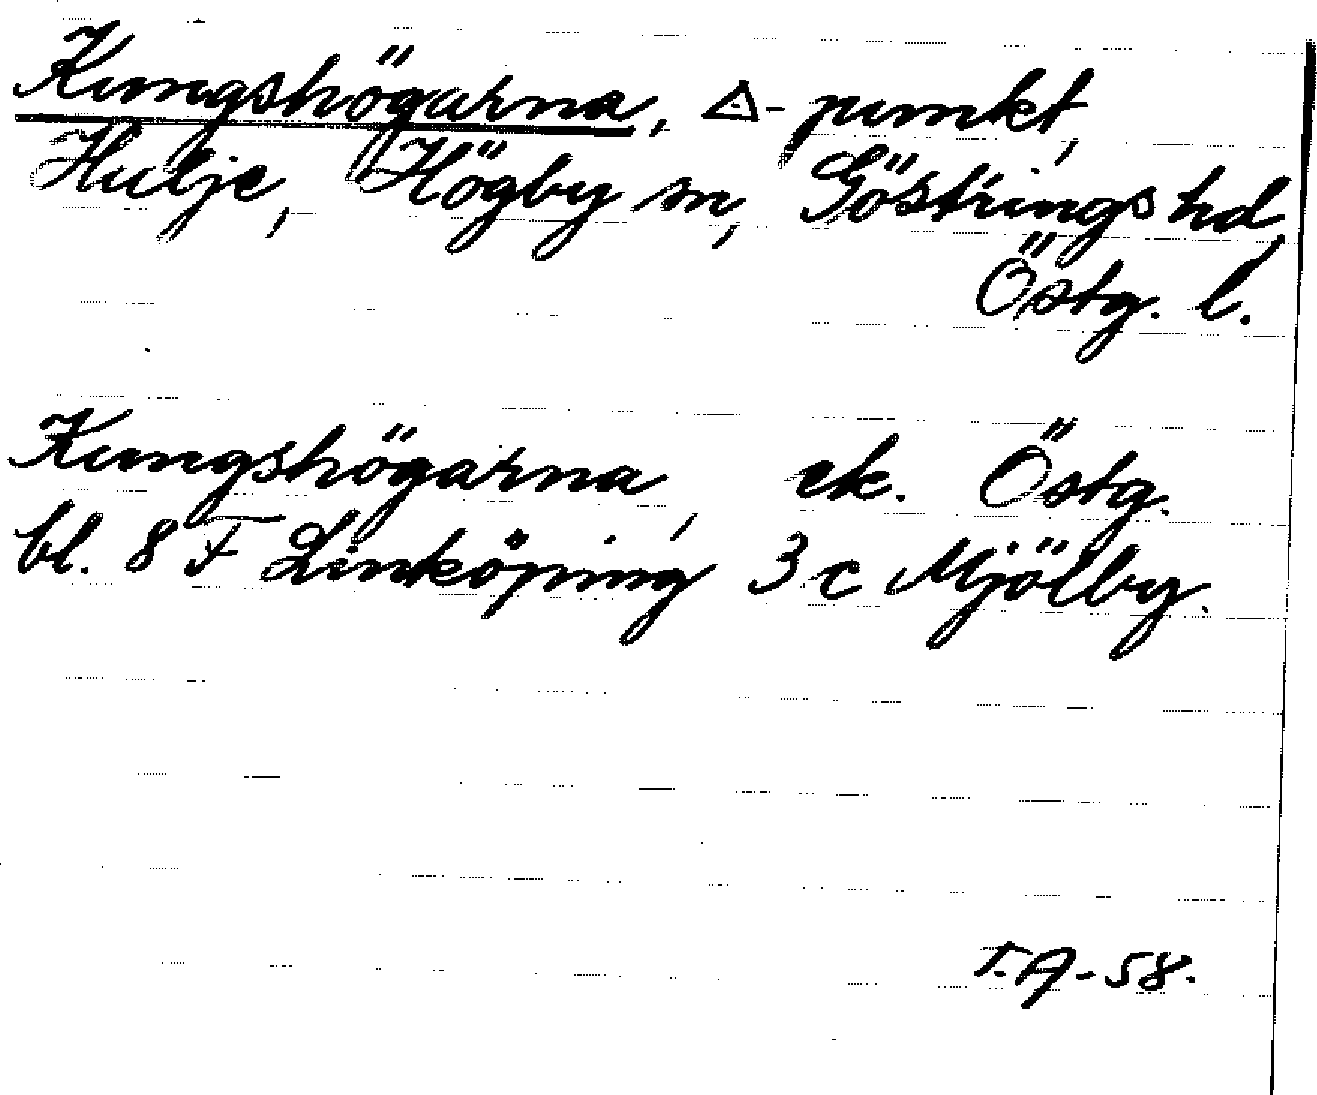 Kungshögarna, △-punkt,
Hulje, Högby sn, Göstrings hd,
Östg. l.
Kungshögarna, ek. Östg.
bl. 8 F Linköping 3 c Mjölby.
T.A-58.